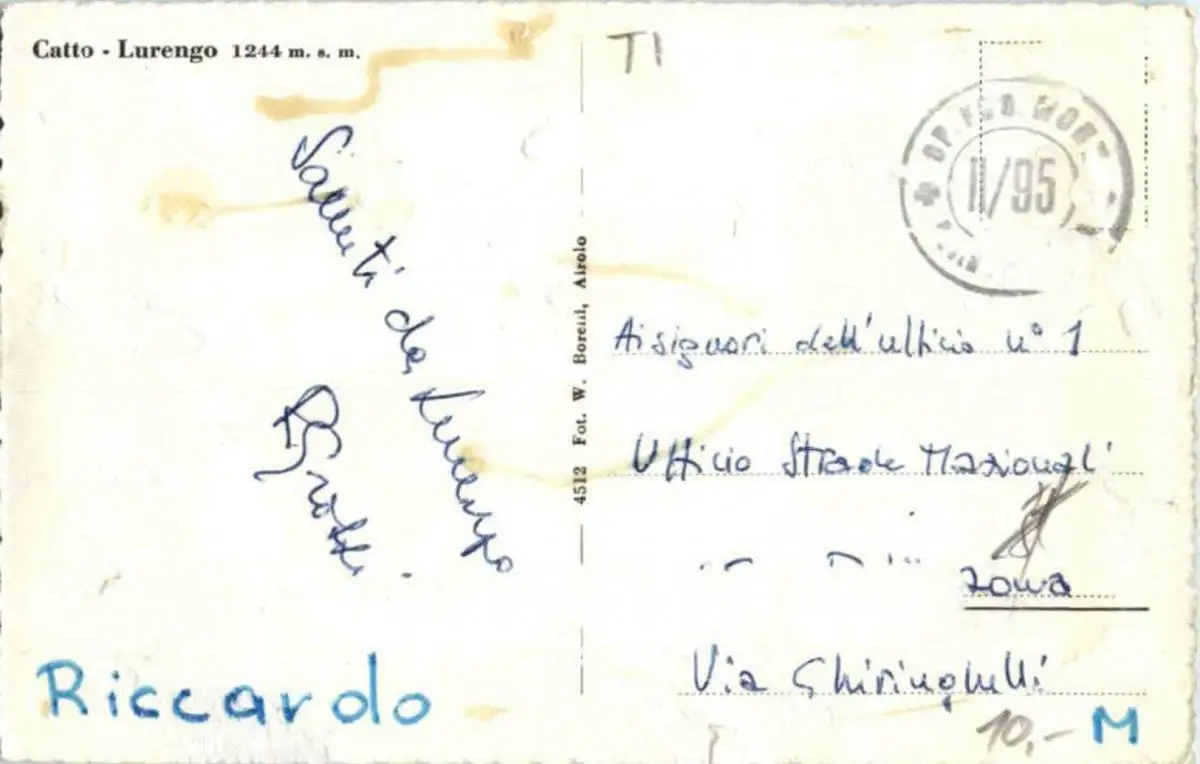 Catto - Lurengo 1244 m. s. m.
TI
II/95
Saluti da Lurengo
Riccardo
4512 Fot. W. Borelli, Airolo
Ai signori dell'ufficio n° 1
Ufficio Strade Nazionali
Via Ghiringhelli
10,- M